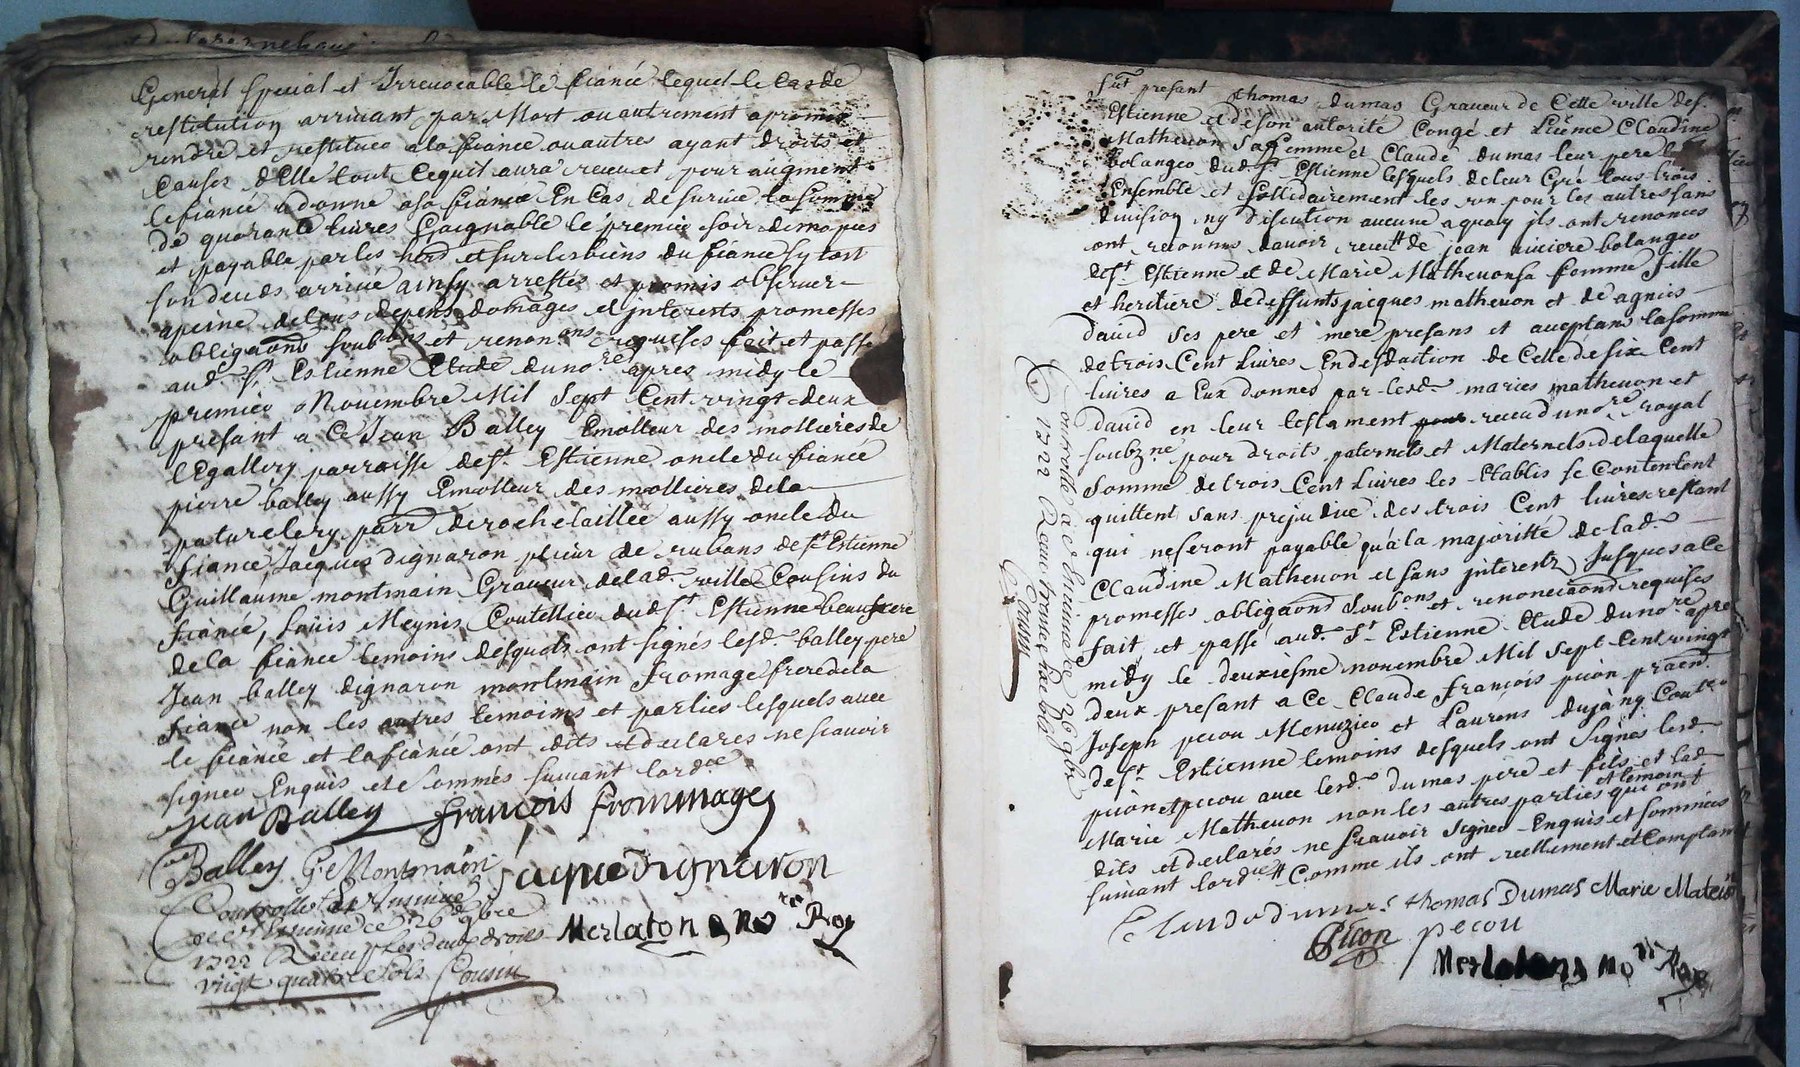 General special et Irreuocable le fiancé lequel le cas de
restitution arriuant par Mort ou autrement a promis
rendre et restituer a la fiancé ou autres ayant droits et
causes d'Elle tout Cequil aura receu et pour augment
le fiancé a donné a sa fiancée En Cas de suruie la somme
de quarante liures Gaignable le premier soir de nopces
et payable par les hoirs et sur les biens du fiancé sy tost
son deces arriué ainsy arrestes et promis obseruer
a peine de tous depens domages et jnterests promesses
obligaons soubons et renonons requises fait et passé
aud. St. Estienne Etude du nore. apres midy le
premier Nouembre Mil Sept Cent vingt deux
presant a Ce Jean Balley Emolleur des mollieres de
parroisse de St. Estienne oncle du fiancé
pierre balley aussy Emolleur des mollieres de la
parr de rochetaillée aussy oncle du
fiancé, Jacques dignaron plieur de rubans de St Estienne
Guillaume montmain Graueur de lad. ville Cousins du
fiancé, Loüis Meynis Coutellier dud St Estienne beaufrere
de la fiancé temoins desquels ont signés lesd. balley pere
Jean balley dignaron montmain fromage frere de la
fiancé non les autres temoins et parties lesquels auec
le fiancé et la fiancé ont dits et declarés ne scauoir
signer Enquis et Sommés suiuant lordce
Jean Balley françois frommage
Balley G Montmain Jacque Dignaron
Controllé et Insinué
a St Estienne ce 26 9bre
1722 Receu les deux droits Merlaton nore Roy
vingt quatre sols Cousin
fut presant thomas dumas Graueur de Cette ville de St.
Estienne et de son autorité Congé et licence Claudine
Matheuon sa femme et Claude dumas leur pere
bolanger dud. St. Estienne lesquels de leur Gré tous trois
Ensemble et sollidairement les vn pour les autres sans
diuision ny discution aucune a quoy ils ont renoncés
ont reconnu dauoir receu # de jean bolanger
de St Estienne et de Marie Matheuon sa femme fille
et heritiere de deffunts jacques matheuon et de agnies
dauid ses pere et mere presans et acceptans la somme
de trois Cent liures En deduction de Celle de six Cent
liures a Eux donnes par lesd. maries matheuon et
dauid en leur testament receu du nore royal
soubzné pour droits paternels et Maternels de laquelle
somme de trois Cent Liures les Etablis se Contentent
quittent sans prejudice des trois Cent liures restant
qui ne seront payable qu'a la majoritté de lad.
Claudine Matheuon et sans jnterent jusques a Ce
promesses obligaons soubons et renonciaons requises
fait et passé aud. St Estienne Etude du nore apre
midy le deuxiesme nouembre Mil Sept Cent vingt
deux presant a Ce Claude françois picon praen.
Joseph pecou Menuzier et Laurens dujany Coutr
de St Estienne temoins desquels ont Signés lesd.
picon et pecou auec lesd. dumas pere et fils et lad
Marie Matheuon non les autres parties et temoin qui ont
dits et declarés ne scauoir signer Enquis et sommés
suiuant lordce # Comme ils ont reellement et Comptant
Claude dumas thomas Dumas Marie Mateuon
Picon pecou
Merlaton no Roy
Controllé a St Etienne ce 26 9bre
1722 Receu trente six sols
Cousin